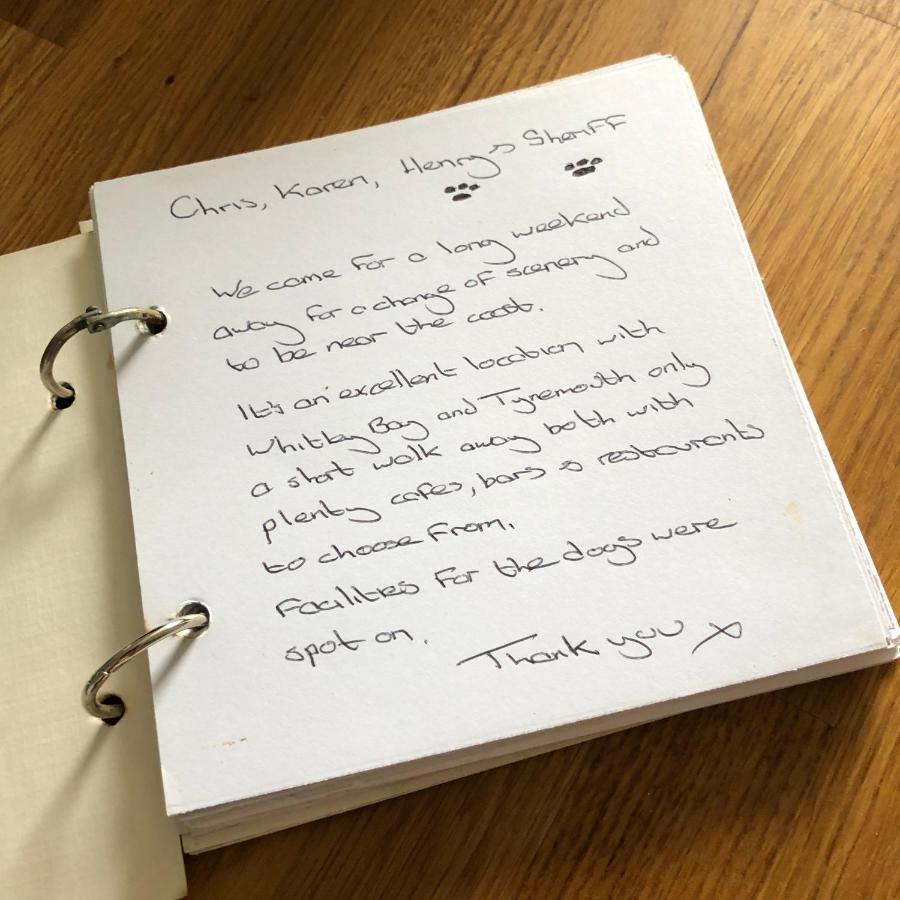 Chris, Karen, Henry & Sheriff
We came for a long weekend
away for a change of scenery and
to be near the coast.
It's an excellent location with
Whitley Bay and Tynemouth only
a short walk away both with
plenty cafes, bars & restaurants
to choose from.
Facilities for the dogs were
spot on.
Thank you x